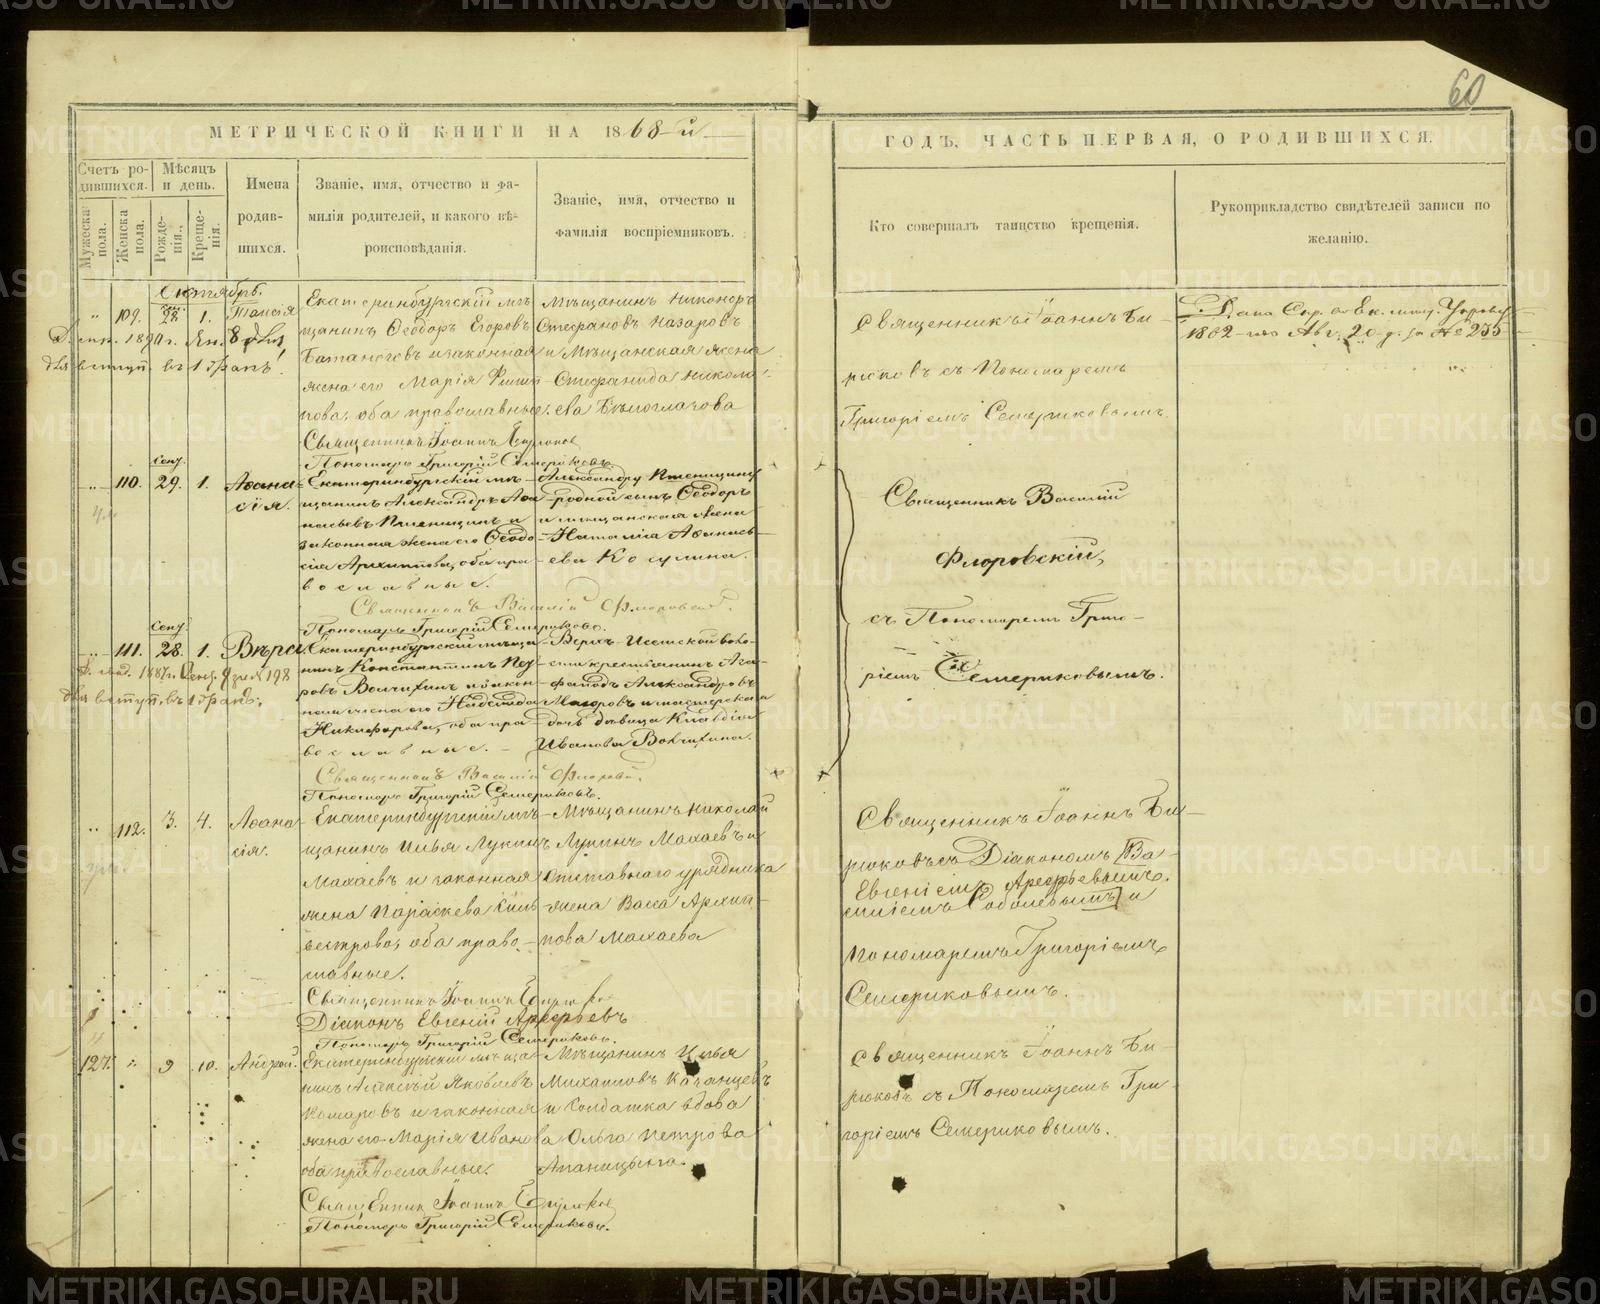 60
МЕТРИЧЕСКОЙ КНИГИ НА 1868-й
ГОДЪ, ЧАСТЬ ПЕРВАЯ, О РОДИВШИХСЯ.
Счетъ ро-
дившихся.
Мѣсяцъ
и день.
Мужеска
пола.
Женска
пола.
Рожде-
нія.
Креще-
нія.
Имена
родив-
шихся.
Званіе, имя, отчество и фа-
милія родителей, и какого вѣ-
роисповѣданія.
Званіе, имя, отчество и
фамилія воспріемниковъ.
Кто совершалъ таинство крещенія.
Рукоприкладство свидѣтелей записи по
желанію.
Октябрь.
" 109. 22. 1. Таисія
Екатеринбургскій мѣ-
щанинъ Ѳеодоръ Егоровъ
и законная
жена его Марія Филип-
пова, оба православные.
Священникъ Іоаннъ Бирюковъ
Пономарь Григорій Семериковъ.
Мѣщанинъ Никоноръ
Стефановъ Назаровъ
и Мѣщанская жена
Стефанида Никола-
ева Бѣлоглазова
Священникъ Іоаннъ Би-
рюковъ съ Пономаремъ
Григоріемъ Семериковымъ.
для вступ. въ 1 бракъ!
Сен.
" 110. 29. 1. Аѳана-
сія.
Екатеринбургскій мѣ-
щанинъ Александръ Аѳа-
насьевъ Пшеницынъ и
законная жена его Ѳеодо-
сія Архиппова, оба пра-
вославные.
Священникъ Василій Флоровскій.
Пономарь Григорій Семериковъ.
Александру Пшеницыну
родной сынъ Ѳеодоръ
и мѣщанская жена
Наталія Аѳанась-
ева Косулина.
Священникъ Василій
Флоровскій,
съ Пономаремъ Григо-
ріемъ Семериковымъ.
Сен.
" 111. 28. 1. Вѣра
Екатеринбургскій мѣща-
нинъ Константинъ Пет-
ровъ Волчихинъ и закон-
ная жена его Надежда
Никифорова, оба пра-
вославные.
Священникъ Василій Флоровскій.
Пономарь Григорій Семериковъ.
Верхъ-Исетской воло-
сти крестьянинъ Ага-
фаподъ Александровъ
и мастерская
дочь дѣвица Клавдія
Иванова Волчихина.
для вступ. въ 1 бракъ.
" 112. 3. 4. Аѳана-
сія.
Екатеринбургскій мѣ-
щанинъ Илья Лукинъ
Махаевъ и законная
жена Параскева Силь-
вестрова, оба право-
славные.
Священникъ Іоаннъ Бирюковъ
Діаконъ Евгеній Арефьевъ
Пономарь Григорій Семериковъ.
Мѣщанинъ Николай
Лукинъ Махаевъ и
отставнаго урядника
жена Васса Архип-
пова Махаева
Священникъ Іоаннъ Би-
рюковъ съ Діакономъ [Ва-
Евгеніемъ Арефьевымъ.
силіемъ Соболевымъ] и
пономаремъ Григоріемъ
Семериковымъ.
127. " 9 10. Андрей.
Екатеринбургскій мѣща-
нинъ Алексѣй Яковлевъ
Комаровъ и законная
жена его Марія Иванова
оба православные.
Священникъ Іоаннъ Бирюковъ
Пономарь Григорій Семериковъ.
Мѣщанинъ Илья
Михаиловъ Казанцевъ
и Солдатка вдова
Ольга Петрова
Апаницына.
Священникъ Іоаннъ Би-
рюковъ съ Пономаремъ Гри-
горіемъ Семериковымъ.
METRIKI.GASO-URAL.RU